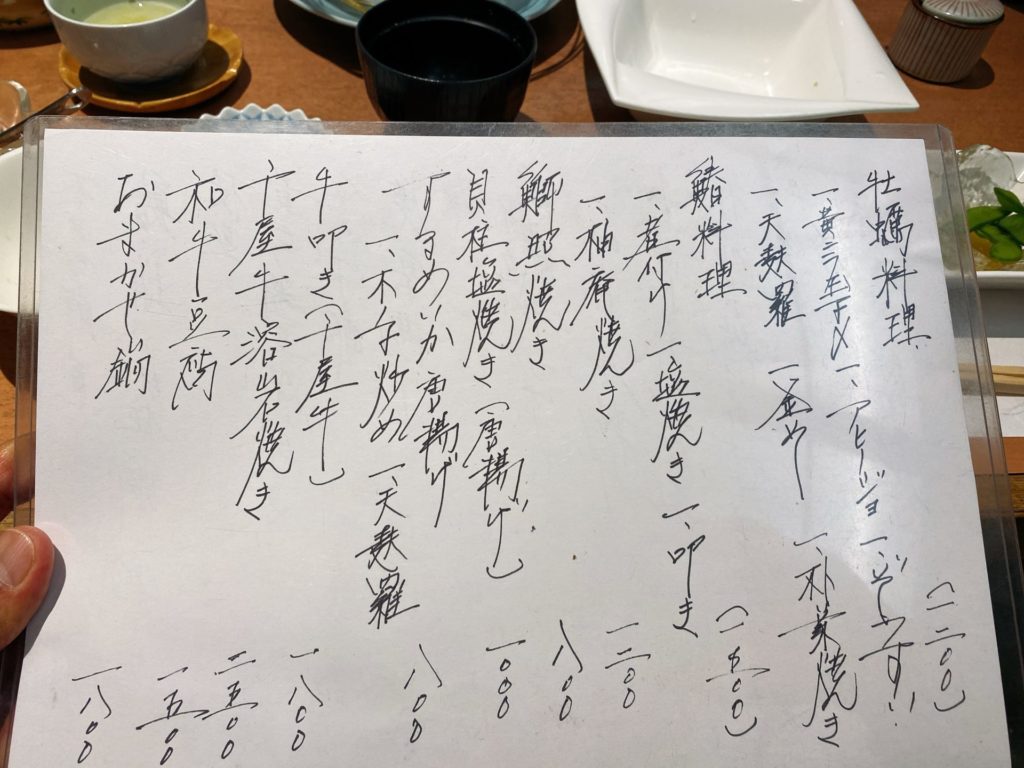 牡蠣料理 （一二〇〇）
一、黄ニラ玉子〆 一、アヒージョ 一、ぞーすい
一、天麩羅 一、釜めし 一、朴葉焼き
鰆料理 （一五〇〇）
一、煮付け 一、塩焼き 一、叩き
一、柚庵焼き 一二〇〇
鰤照焼き 八〇〇
貝柱塩焼き（唐揚げ） 一〇〇〇
するめいか唐揚げ 八〇〇
一、木の子炒め 一、天麩羅
牛叩き（千屋牛） 一八〇〇
千屋牛溶岩焼き 二五〇〇
和牛豆腐 一五〇〇
おまかせ小鍋 一八〇〇